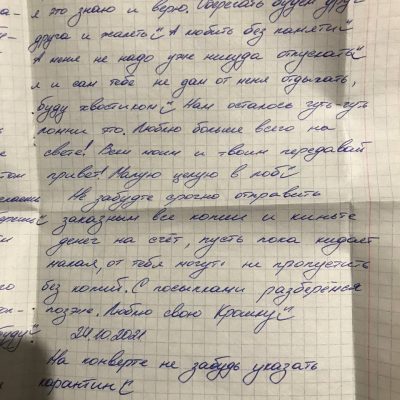 я это знаю и верю. Оберегать будем друг
друга и жалеть. А любить без памяти
А меня не надо уже никуда отпускать
я и сам тебе не дам от меня отдыхать,
буду хвостиком Нам осталось чуть-чуть
помни это. Люблю больше всего на
свете! Всем моим и твоим передавай
привет! Малую целую в лоб
Не забудьте срочно отправить
заказным все копии и киньте
денег на счёт, пусть пока кидает
малая, от тебя могут не пропустить
без копий. С посылками разберемся
позже. Люблю свою Крошку
24.10.2021
На конверте не забудь указать
карантин